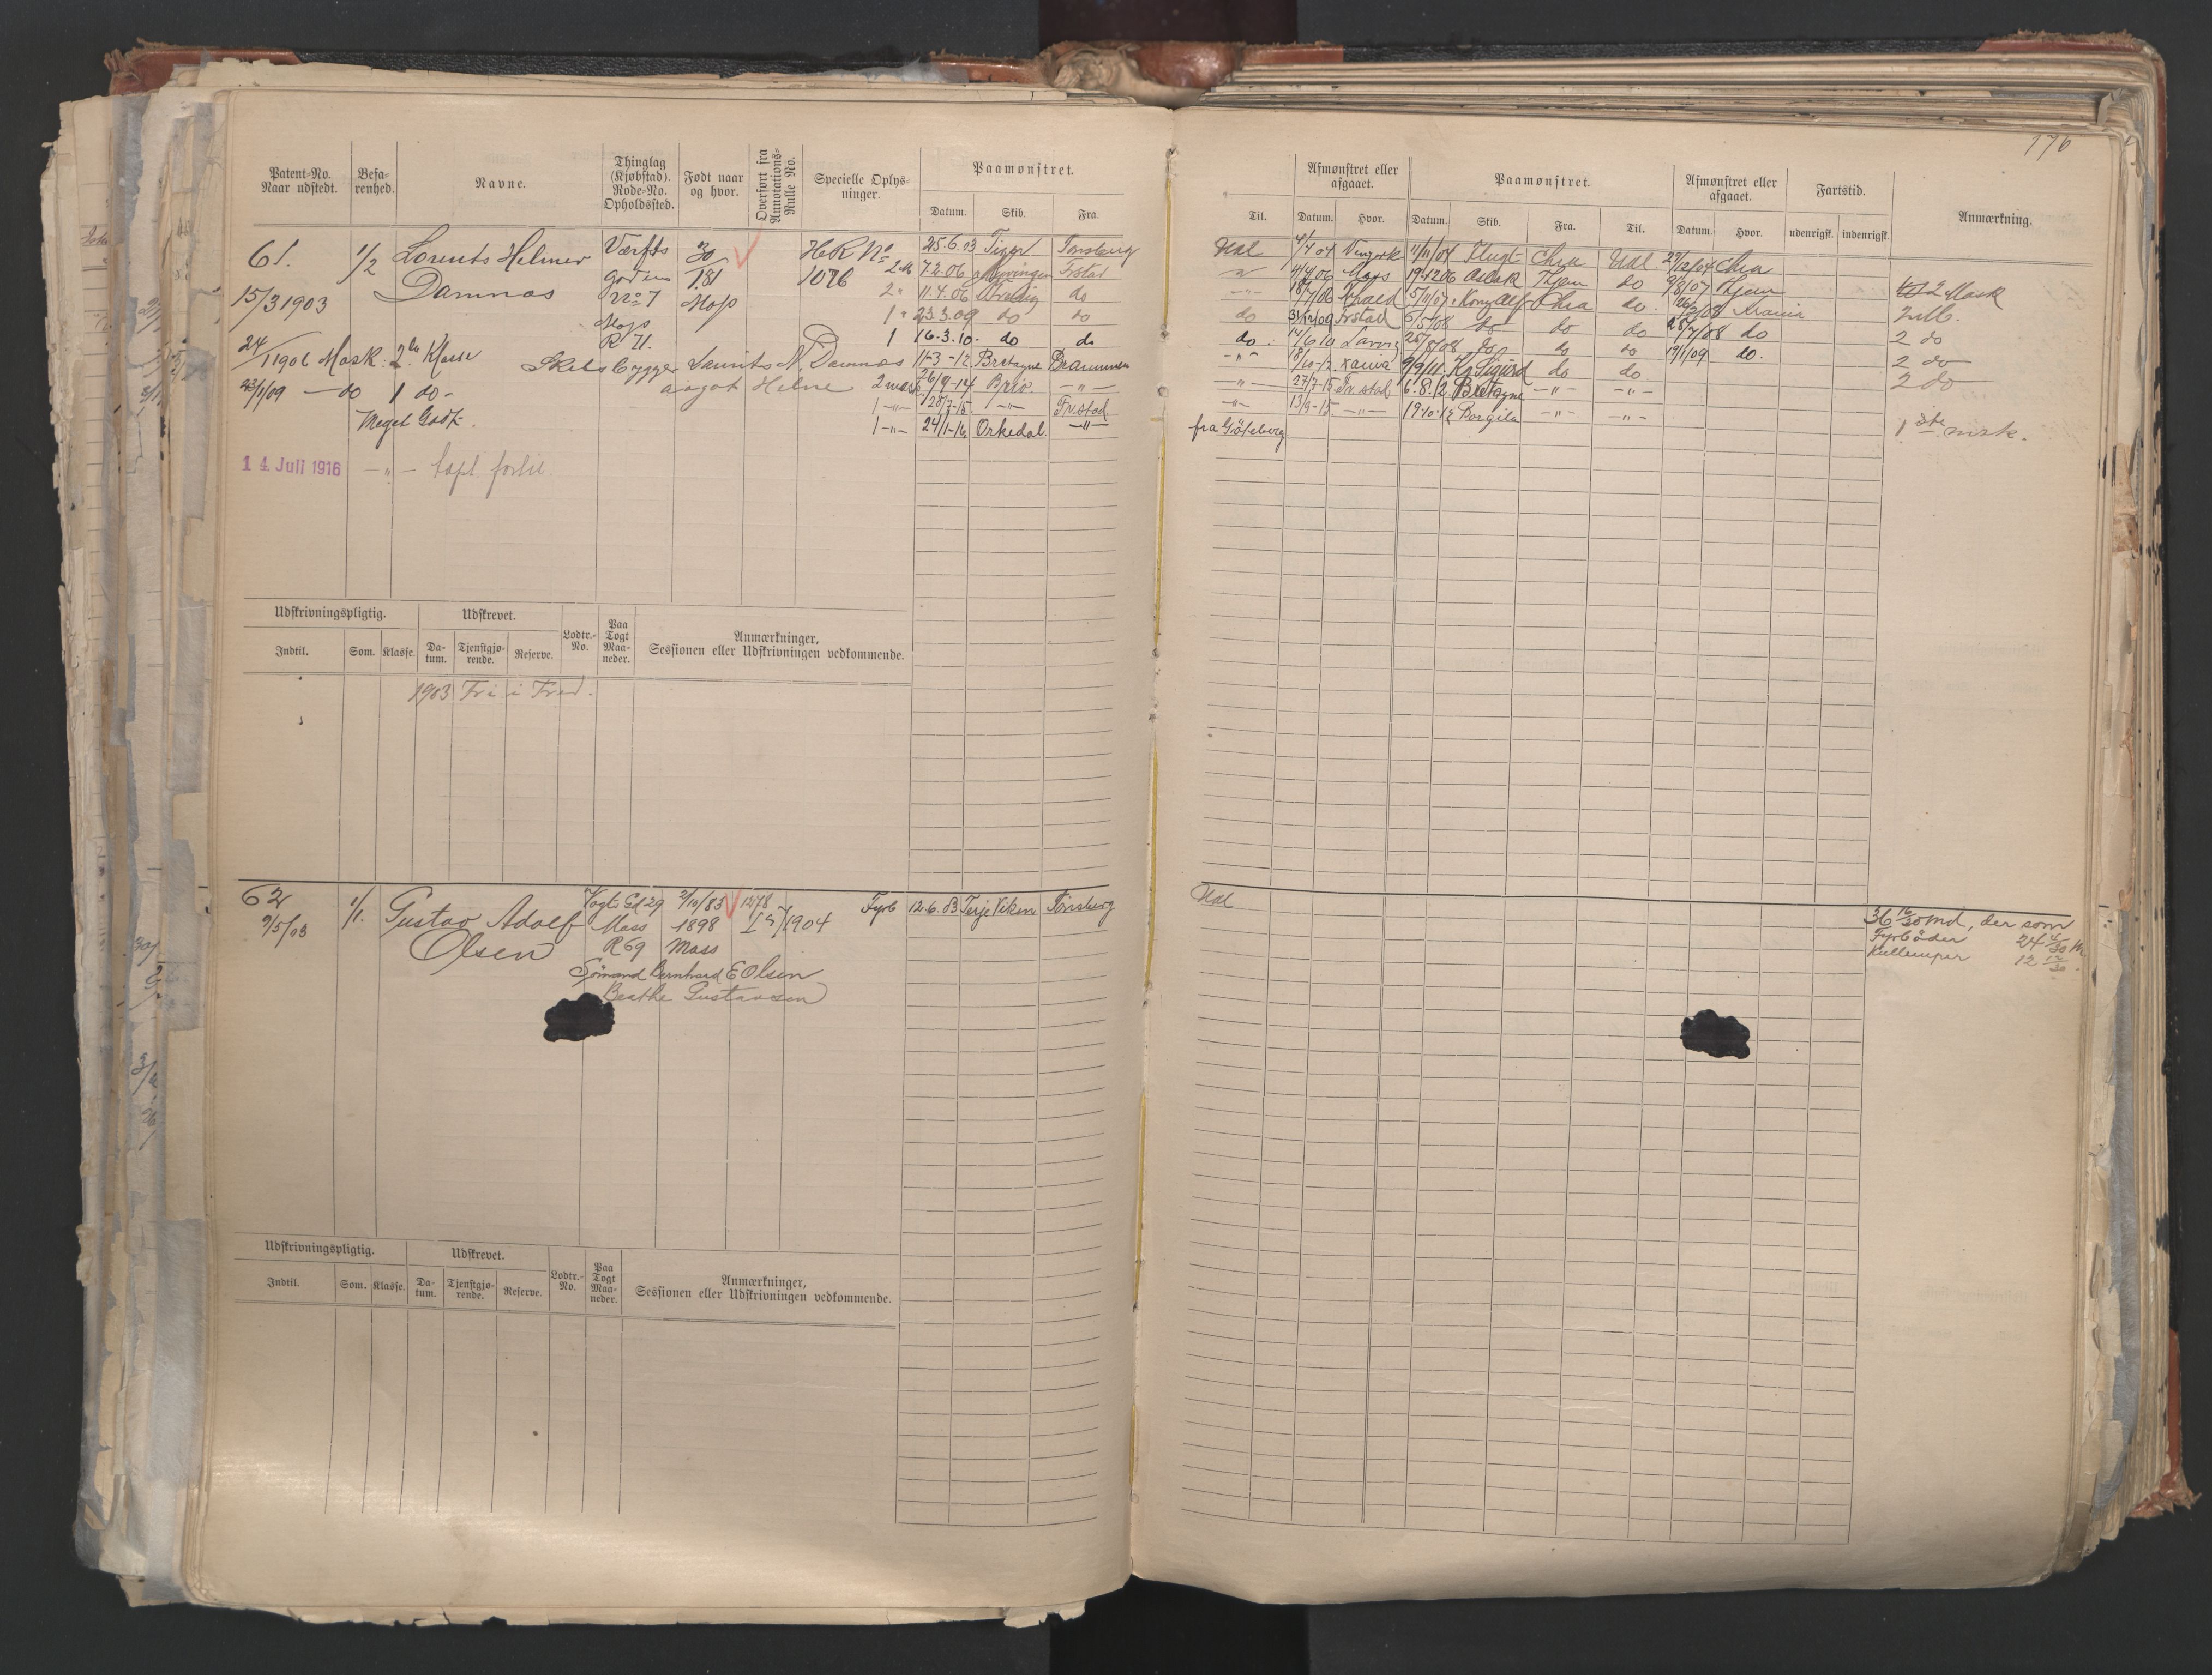 176
Patent-No. Naar udstedt.
Befarenhed.
Navne.
Thinglag (Kjøbstad). Rode-No. Opholdssted.
Født naar og hvor.
Overført fra Annotations-Rulle No.
Specielle Oplysninger.
Paamønstret.
Datum. Skib. Fra.
Til.
Afmønstret eller afgaaet.
Datum. Hvor.
Paamønstret.
Datum. Skib. Fra. Til.
Afmønstret eller afgaaet.
Datum. Hvor.
Fartstid.
udenrigsk. indenrigsk.
Anmærkning.
61. 1/2 Lorents Helmer Værfts 30 HRR No 25.6.03 Tiger Tønsberg
Damnæs gaden 7.81 1076 7.2.06 Frstad
15/3 1903 No 7 Moss 2" 11.4.06 do
Moss 1" 23.3.09 do do
R 71. 1 16.3.10. do do
24/1 1906 Mask. 2den Klasse Skibsbygger Laurits N. Damnæs 11-3-12 Bretagne Drammen
23/1/09 — do 1 do - Helne 26/9-14 Brio. —"—
Meget Godt. 1 —"— 28/7-15. —"— Fr.stad
1 —"— 24/1-16 Orkedal. —"—
14. Juli 1916 —"— Capt. fortil.
Udl 4/7 04 11/11/04 Flugt Chra Udl 29/12/04 Chra
4/4 06 Moss 19.12.06 Aslak Thjem do 9/8/07 Thjem 2 Mask
18/7/06 5/11/07 Kong Alf Chra do. Krania
do 31/12/09 Frstad 6/5/08 do do do 28/7/08 do 2 do
do. 14/6 10 Larvig 25/8/08 do do do 19/1/09 do. 2 do
—"— 18/10-12 Xania 9/9/11. Kg Sigurd do do 2 do
—"— 27/7-15 Fr.stad 6.8.12 Bretagne —"— —"—
—"— 13/9-15 —"— 19.10.12 Borgila —"— —"— 1ste msk.
fra Göteborg.
Udskrivningspligtig.
Indtil. Som. Klasse.
Udskrevet.
Datum. Tjenstgjørende. Reserve.
Lodtr.-No.
Paa Togt Maaneder.
Anmærkninger, Sessionen eller Udskrivningen vedkommende.
1903 Fri i Fred.
62 1/1. Gustav Adolf Vogts Gd 29 2/10/83 1278 Fyrb 12.6.03 Terje Viken Tønsberg
9/5/03 Olsen Moss 1898 1904
R 69 Moss
Sömand Bernhard E Olsen
Beathe Gustavsen
Udl
36 16/30 md, der som
Fyrböder 24
Kullemper 12
Udskrivningspligtig.
Indtil. Som. Klasse.
Udskrevet.
Datum. Tjenstgjørende. Reserve.
Lodtr.-No.
Paa Togt Maaneder.
Anmærkninger, Sessionen eller Udskrivningen vedkommende.